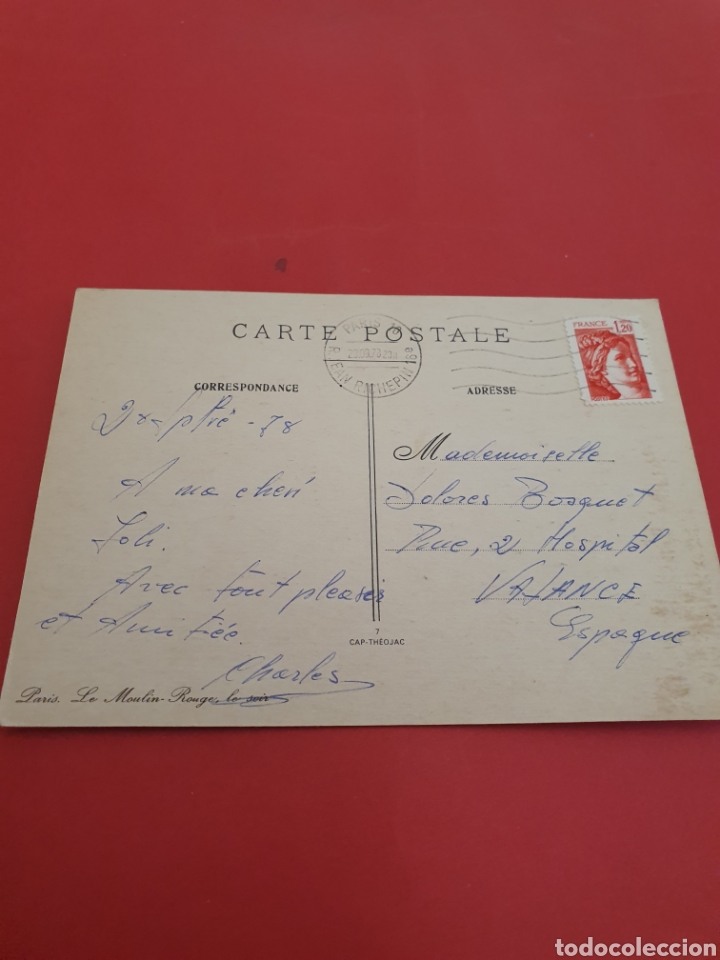 CARTE POSTALE
PARIS 18
FRANCE 1,20
CORRESPONDANCE
ADRESSE
-78
A ma cheri
Joli.
Avec tout pleasis
et Amitiée.
Charles
Mademoiselle
Dolores Bosquet
Rue, 2 Hospital
VALANCE
Espagne
7
CAP-THÉOJAC
Paris. Le Moulin-Rouge, le soir
todocoleccion